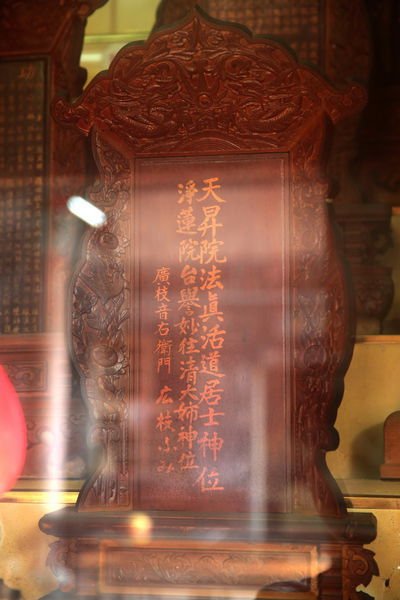 天昇院法眞活道居士神位
淨蓮院台譽妙往清大姉神位
廣枝音右衛門 広枝ふみ